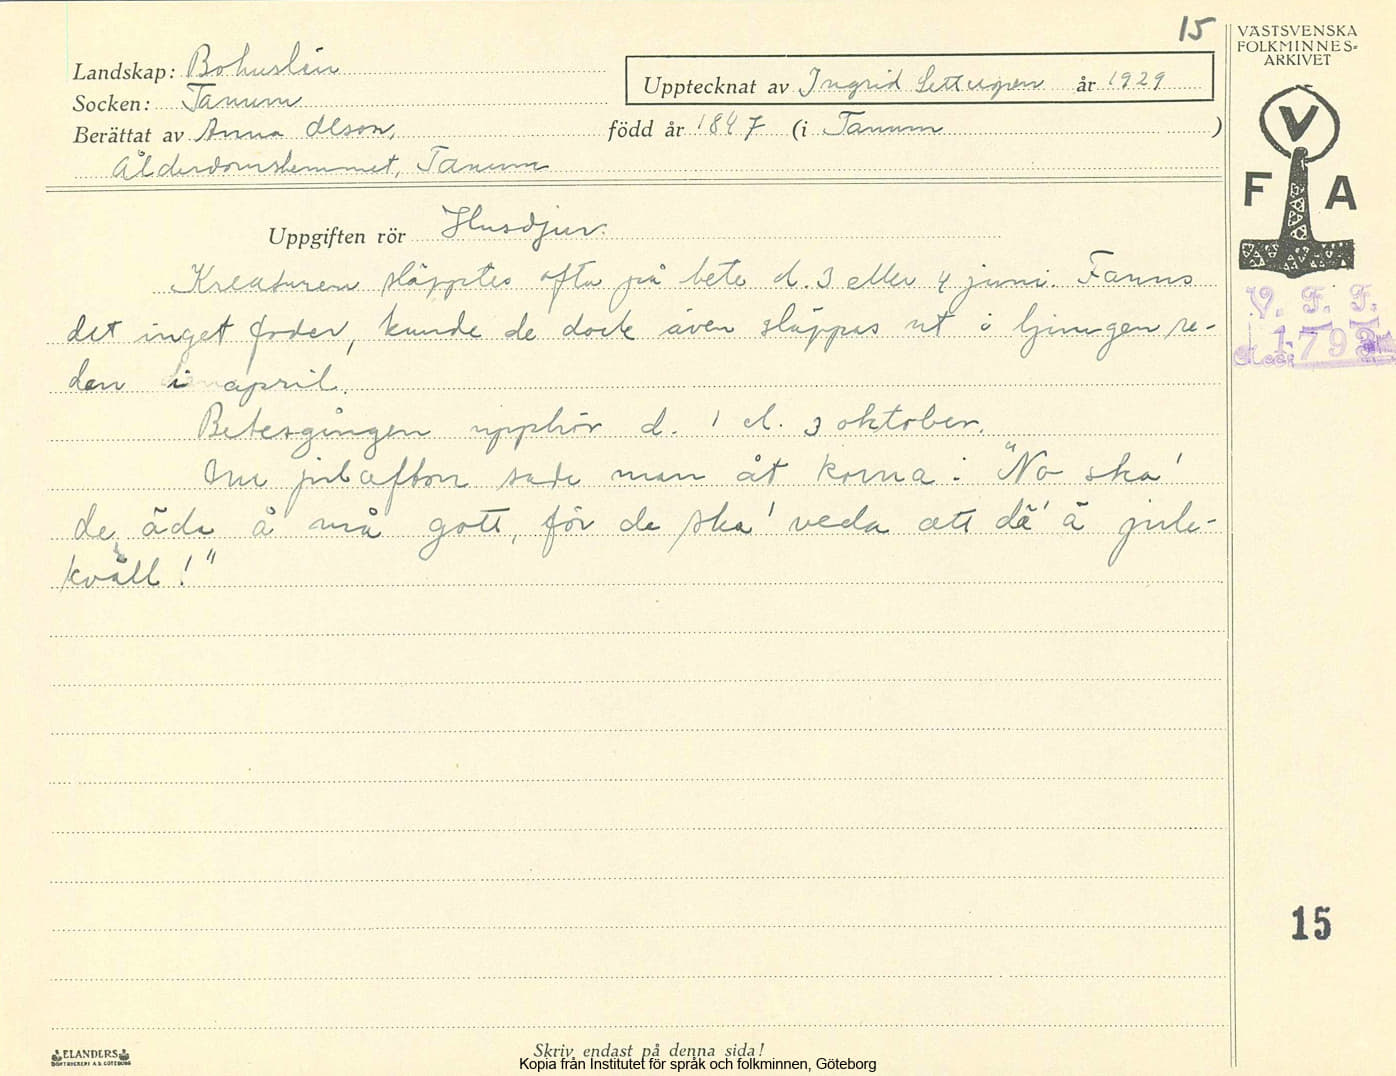 15
VÄSTSVENSKA
FOLKMINNES-
ARKIVET
Landskap: Bohuslän
Upptecknat av Ingrid år 1929
Socken: Tanum
Berättat av Anna Olson, född år 1847 (i Tanum )
Ålderdomshemmet, Tanum
V
F A
Uppgiften rör Husdjur.
Kreaturen släpptes ofta på bete d. 3 eller 4 juni. Fanns
det inget foder, kunde de dock även släppas ut i ljungen re-
dan i april.
Betesgången upphör d. 1 el. 3 oktober.
Om julafton sade man åt korna: "No ska'
de äda å må gott, för de ska' veda att dä' ä jule-
kväll!"
V. F. F.
1793
15
ELANDERS
BOKTRYCKERI A.B. GÖTEBORG
Skriv endast på denna sida!
Kopia från Institutet för språk och folkminnen, Göteborg